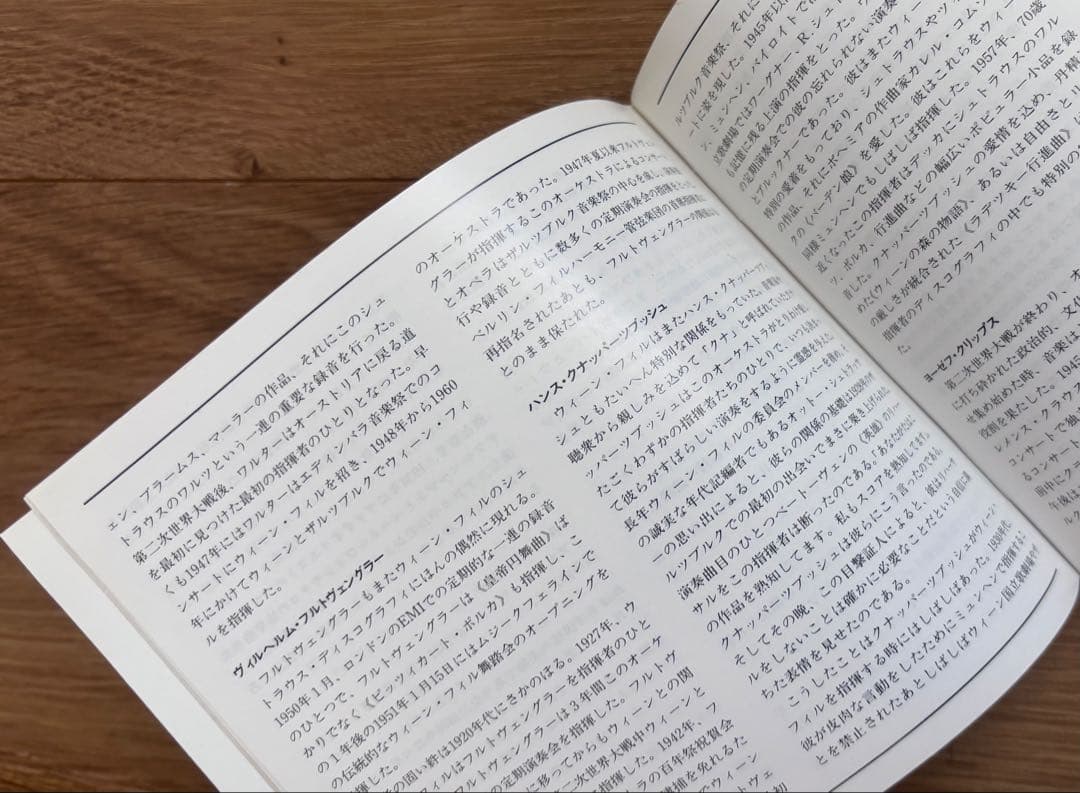 ェン、ブラームス、マーラーの作品、それにこのシュ
トラウスのワルツという一連の重要な録音を行った。
第二次世界大戦後、ワルターはオーストリアに戻る道
を最初に見つけた最初の指揮者のひとりとなった。早
くも1947年にはワルターはエディンバラ音楽祭でのコ
ンサートにウィーン・フィルを招き、1948年から1960
年にかけてウィーンとザルツブルクでウィーン・フィ
ルを指揮した。
ヴィルヘルム・フルトヴェングラー
フルトヴェングラーもまたウィーン・フィルのシュ
トラウス・ディスコグラフィにほんの偶然に現れる。
1950年1月、ロンドンのEMIでの定期的な一連の録音
のひとつで、フルトヴェングラーは《皇帝円舞曲》ば
かりでなく《ピッツィカート・ポルカ》も指揮し、こ
の1年後の1951年1月15日にはムジークフェラインで
の伝統的なウィーン・フィル舞踏会のオープニングを
揮した。
の固い絆は1920年代にさかのぼる。1927年、ウ
フィルはフルトヴェングラーを指揮者のひと
ルトヴェングラーは3年間このオーケ
の定期演奏会を指揮した。フルトヴ
に移ってからもウィーンとの関
二次世界大戦中ウィーンと
指揮した。1942年、フ
ラの百年祭祝賀会
逮捕を免れるた
でウィーン
のオーケストラであった。1947年夏以来フルトヴェン
グラーが指揮するこのオーケストラによるコンサート
とオペラはザルツブルク音楽祭の中心を成し、演奏旅
行や録音とともに数多くの定期演奏会の指揮をとった。
ベルリン・フィルハーモニー管弦楽団の音楽指揮者に
再指名されたあとも、フルトヴェングラーの関係はそ
のまま保たれた。
ハンス・クナッパーツブッシュ
ウィーン・フィルはまたハンス・クナッパーツブッ
シュともたいへん特別な関係をもっていた。音楽家や
聴衆から親しみを込めて「クナ」と呼ばれていたクナ
ッパーツブッシュはこのオーケストラがとりわけ愛し
たごくわずかの指揮者たちのひとりで、いつも変わら
ず彼らがすばらしい演奏をするように霊感を与えた。
長年ウィーン・フィルの委員会のメンバーを務め、
の誠実な年代記編者でもあるオットー・シュトラッサ
の思い出によると、彼らの関係の基礎は1929年のザ
ルツブルクでの最初の出会いでまさに築き上げられた
演奏曲目のひとつベートーヴェンの《英雄》のリハー
サルをこの指揮者は断ったのである。「あなたがたはこの
作品を熟知してます。私もスコアを熟知してます。」
クナッパーツブッシュは彼らにこう言ったのである。
そしてその晩、この目撃証人によると、彼はリハーサ
ルをしないことは確かに必要なことだという自信に満
ちた表情を見せたのである。
こうしたことはクナッパーツブッシュがウィーン・
フィルを指揮する時にはしばしばあった。1930年代、
彼が皮肉な言動をしたためにミュンヘンで指揮するこ
とを禁止されたあとしばしばウィーン国立歌劇場や
ルツブルク音楽祭、それに
ートに姿を現した。1945年以
シ、ミュンヘン、バイロイトで
立歌劇場ではワーグナー、R・シュト
も記憶に残る上演の指揮をとった。ウ
の定期演奏会での彼の忘れられない演奏
とブルックナーであった。彼はまたウィー
特別の愛着をもっており、シュトラウスやツ
の作品、それにボヘミアの作曲家カレル・コムツ
クの《バーデン娘》を愛した。彼はこれらをウィー
同様ミュンヘンでもしばしば指揮した。1957年、70歳
近くなったこの指揮者はデッカにシュトラウスのワル
ツ、ポルカ、行進曲などの幅広いポピュラー小品を録
音した。クナッパーツブッシュの愛情を込め、丹精
めた《ウィーンの森の物語》、あるいは自由さとリ
の厳しさが統合された《ラデツキー行進曲》
指揮者のディスコグラフィの中でも特別の
た。
ヨーゼフ・クリップス
第二次世界大戦が終わり、
に打ち砕かれた政治的、文化
せ集め始めた時、音楽は
役割を果たした。1945
レメンス・クラウス
コンサートで独
るコンサート
前中にフ
午後は